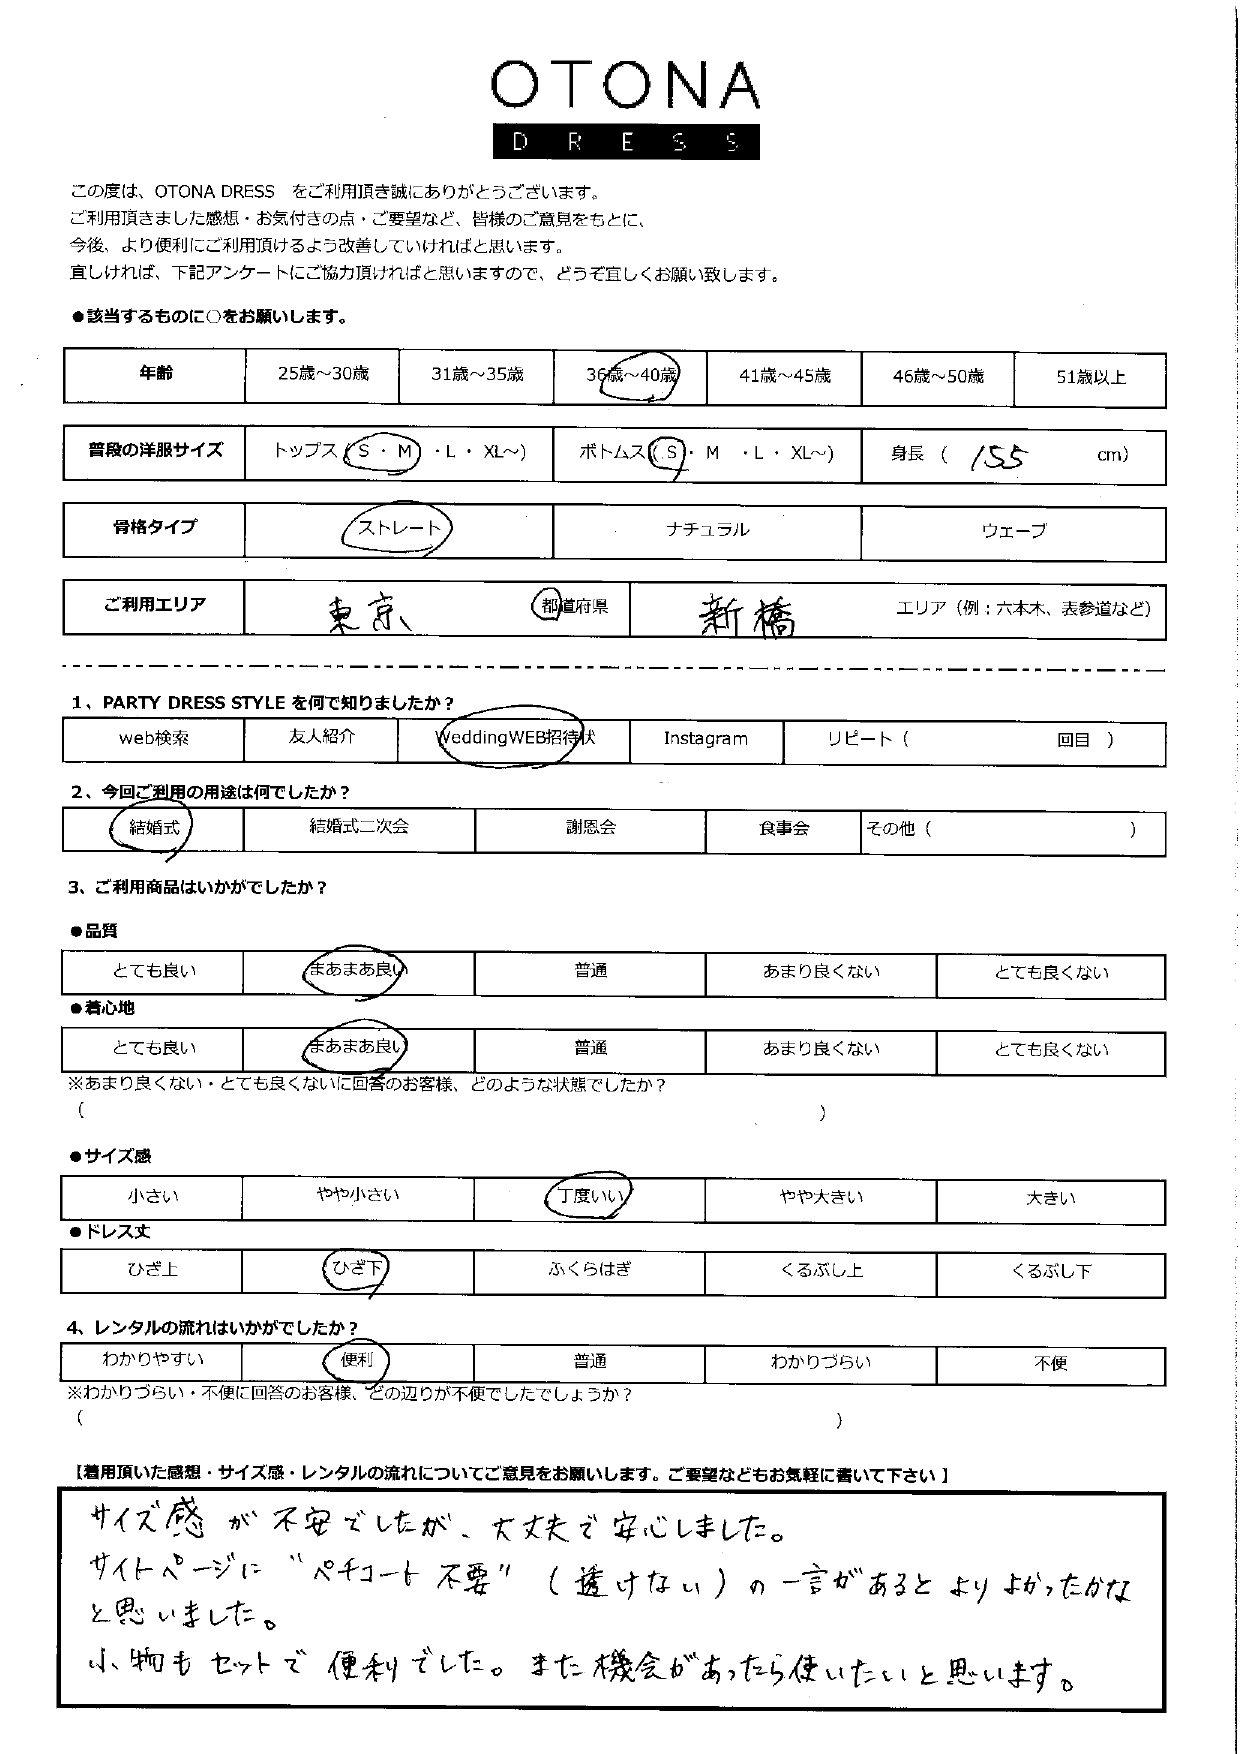 OTONA
DRESS
この度は、OTONA DRESS をご利用頂き誠にありがとうございます。
ご利用頂きました感想・お気付きの点・ご要望など、皆様のご意見をもとに、
今後、より便利にご利用頂けるよう改善していければと思います。
宜しければ、下記アンケートにご協力頂ければと思いますので、どうぞ宜しくお願い致します。
●該当するものに○をお願いします。
年齢 25歳～30歳 31歳～35歳 36歳～40歳 41歳～45歳 46歳～50歳 51歳以上
普段の洋服サイズ トップス（S・M ・L・XL～） ボトムス（S・M ・L・XL～） 身長（ 155 cm）
骨格タイプ ストレート ナチュラル ウェーブ
ご利用エリア 東京 都道府県 新橋 エリア（例：六本木、表参道など）
1、PARTY DRESS STYLE を何で知りましたか？
web検索 友人紹介 WeddingWEB招待状 Instagram リピート（ 回目 ）
2、今回ご利用の用途は何でしたか？
結婚式 結婚式二次会 謝恩会 食事会 その他（ ）
3、ご利用商品はいかがでしたか？
●品質
とても良い まあまあ良い 普通 あまり良くない とても良くない
●着心地
とても良い まあまあ良い 普通 あまり良くない とても良くない
※あまり良くない・とても良くないに回答のお客様、どのような状態でしたか？
（ ）
●サイズ感
小さい やや小さい 丁度いい やや大きい 大きい
●ドレス丈
ひざ上 ひざ下 ふくらはぎ くるぶし上 くるぶし下
4、レンタルの流れはいかがでしたか？
わかりやすい 便利 普通 わかりづらい 不便
※わかりづらい・不便に回答のお客様、どの辺りが不便でしたでしょうか？
（ ）
【着用頂いた感想・サイズ感・レンタルの流れについてご意見をお願いします。ご要望などもお気軽に書いて下さい】
サイズ感が不安でしたが、大丈夫で安心しました。
サイトページに“ペチコート不要”（透けない）の一言があるとよりよかったかな
と思いました。
小物もセットで便利でした。また機会があったら使いたいと思います。